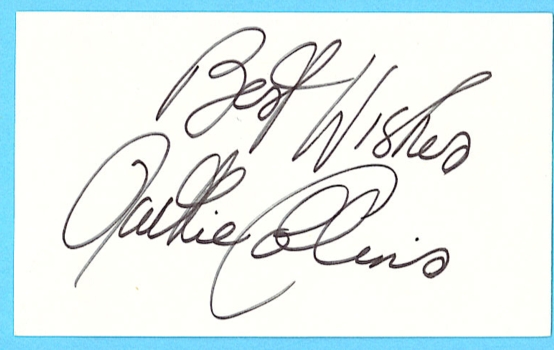 Best Wishes
Jackie Collins